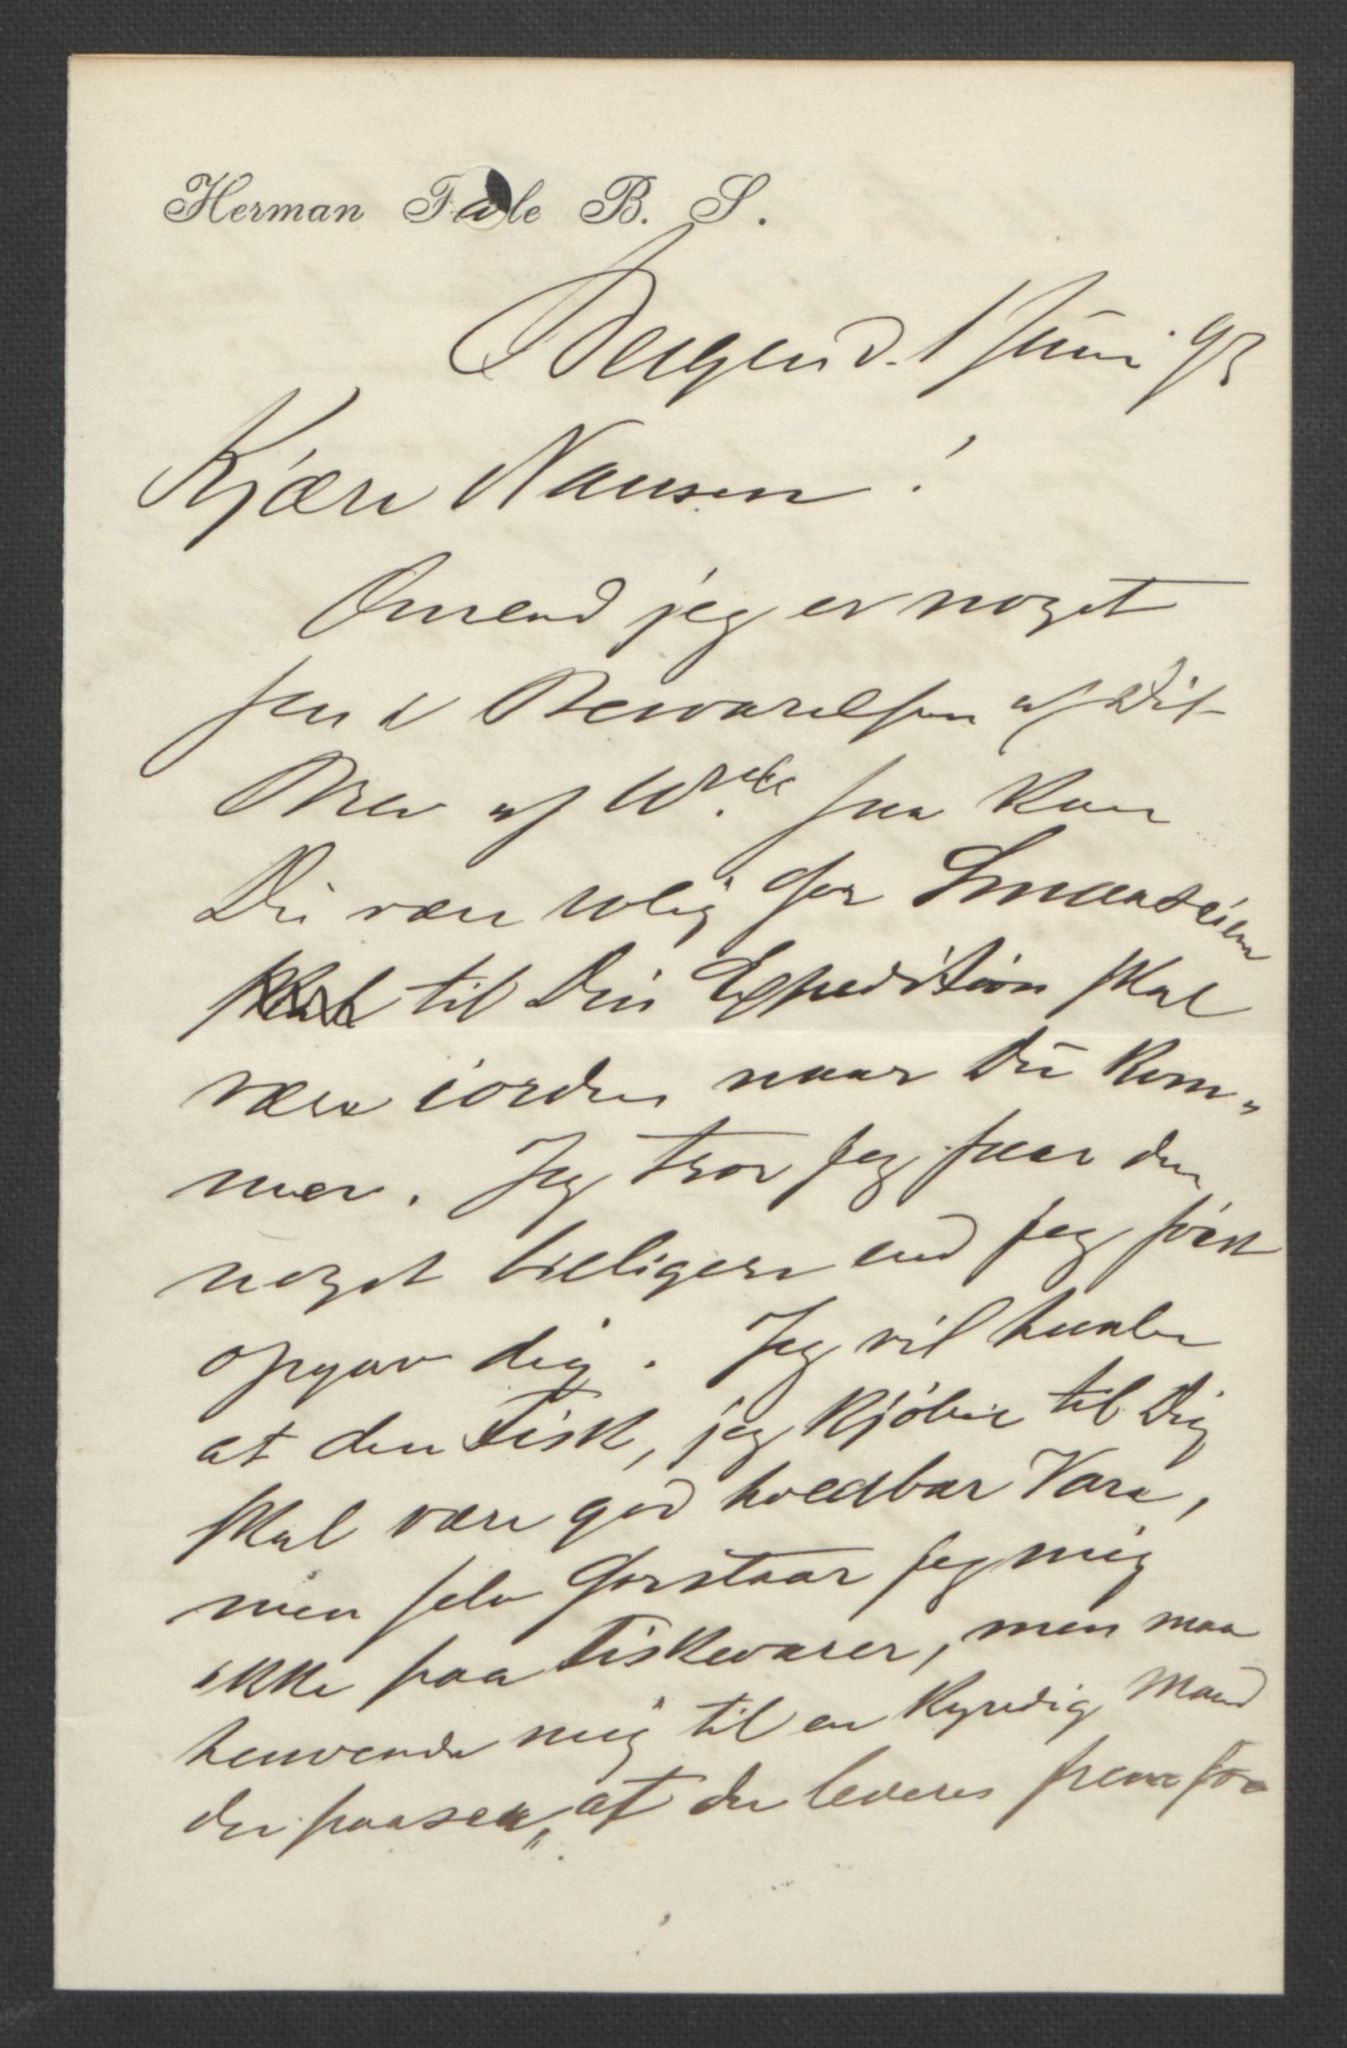 Herman Fale B. S.
Bergen d. 1 Juni 93
Kjære Nansen!
Omend jeg er noget
sen i Besvarelsen af dit
Brev af 10de. saa kan
Du være rolig for Smaaseien
til Din Expedition skal
være iorden naar Du kom„
mer. Jeg tror jeg faar den
noget billigere end jeg först
opgav dig. Jeg vil haabe
at den Fisk, jeg kjøber til Dig
skal være god holdbar Vare,
men selv forstaar jeg mig
ikke paa Fiskevarer, men maa
henvende mig til en kyndig Mand
der paaseer, at der leveres frem fra